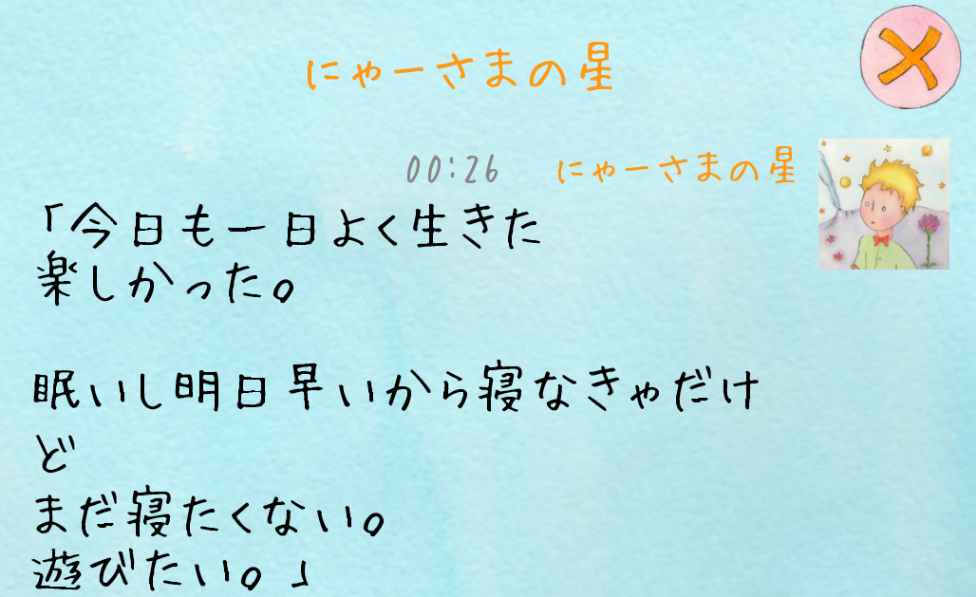 にゃーさまの星
00:26 にゃーさまの星
「今日も一日よく生きた
楽しかった。
眠いし明日早いから寝なきゃだけ
ど
まだ寝たくない。
遊びたい。」